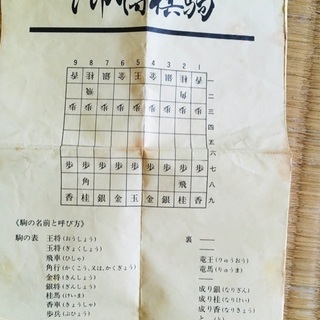 将棋駒
9 8 7 6 5 4 3 2 1
香 桂 銀 金 王 金 銀 桂 香 一
飛 角 二
歩 歩 歩 歩 歩 歩 歩 歩 歩 三
四
五
六
歩 歩 歩 歩 歩 歩 歩 歩 歩 七
角 飛 八
香 桂 銀 金 玉 金 銀 桂 香 九
《駒の名前と呼び方》
駒の表 裏
王将(おうしょう) ——
玉将(ぎょくしょう) ——
飛車(ひしゃ) 竜王(りゅうおう)
角行(かくこう、又は、かくぎょう) 竜馬(りゅうま)
金将(きんしょう) ——
銀将(ぎんしょう) 成り銀(なりぎん)
桂馬(けいま) 成り桂(なりけい)
香車(きょうしゃ) 成り香(なりきょう)
歩兵(ふひょう) と(と)